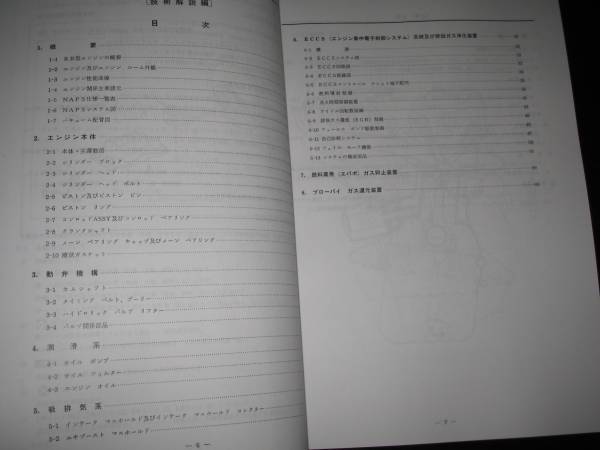 ［技術解説編］
目　次
1. 概　要
1-2 エンジン及びエンジン ルーム外観
1-3 エンジン性能曲線
1-4 エンジン関係主要諸元
1-5 NAPS仕様一覧表
1-6 NAPSシステム図
1-7 バキューム配管図
2. エンジン本体
2-1 本体・主運動部
2-2 シリンダー ブロック
2-3 シリンダー ヘッド
2-4 シリンダー ヘッド ボルト
2-5 ピストン及びピストン ピン
2-6 ピストン リング
2-7 コンロッドASSY及びコンロッド ベアリング
2-8 クランクシャフト
2-9 メーン ベアリング キャップ及びメーン ベアリング
2-10 液状ガスケット
3. 動弁機構
3-1 カムシャフト
3-2 タイミング ベルト、プーリー
3-3 ハイドロリック バルブ リフター
3-4 バルブ関係部品
4. 潤滑系
4-1 オイル ポンプ
4-2 オイル フィルター
4-3 エンジン オイル
5. 吸排気系
5-1 インテーク マニホールド及びインテーク マニホールド コレクター
5-2 エキゾースト マニホールド
— 6 —
6. ECCS（エンジン集中電子制御システム）系統及び排出ガス浄化装置
6-1 概要
6-2 ECCSシステム図
6-3 ECCS回路図
6-4 ECCS
6-5 ECCSコントロール ユニット端子配列
6-6 燃料噴射制御
6-7 点火時期制御装置
6-8 アイドル回転数制御
6-9 排気ガス還流（EGR）制御
6-10 フューエル ポンプ駆動制御
6-11 自己診断システム
6-12 フェイル セーフ機能
6-13 システムの構成部品
7. 燃料蒸発（エバポ）ガス抑止装置
8. ブローバイ ガス還元装置
— 7 —